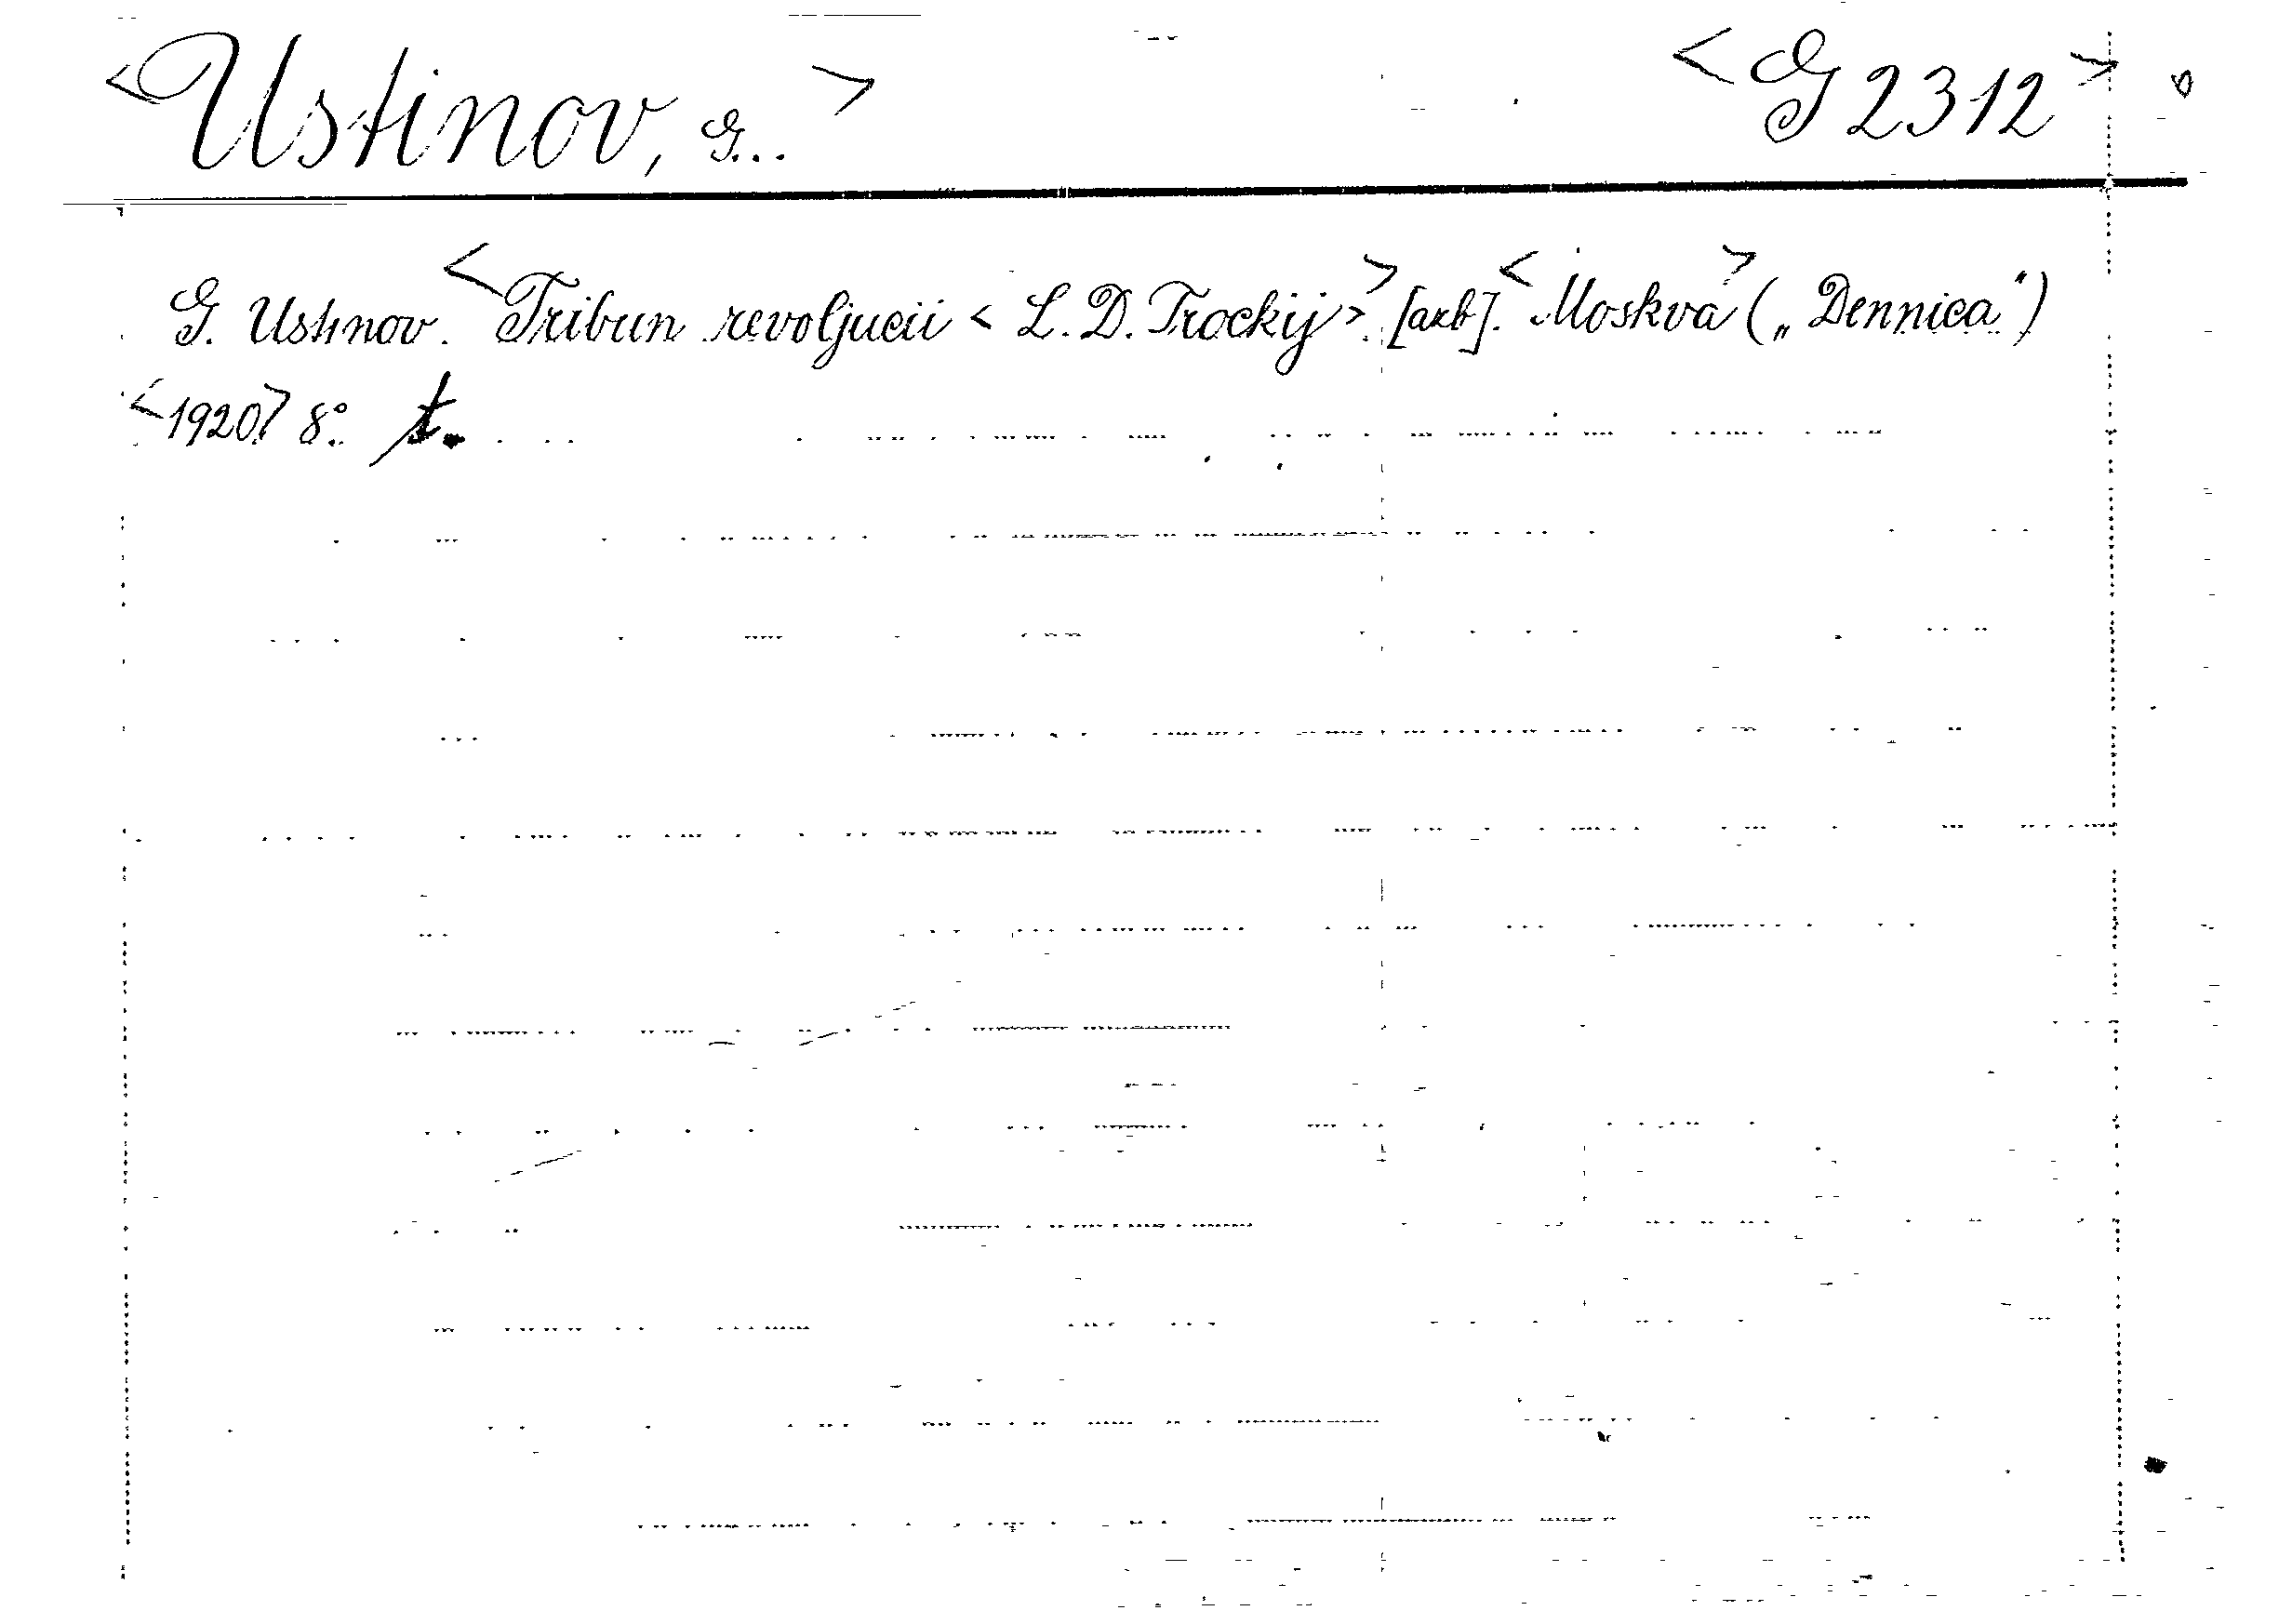 <Ustinov, G...> <G 2312>
G. Ustinov. <Tribun revoljucii < L. D. Trockij>.> [arb]. <Moskva> („Dennica“)
<1920.> 8°. t.